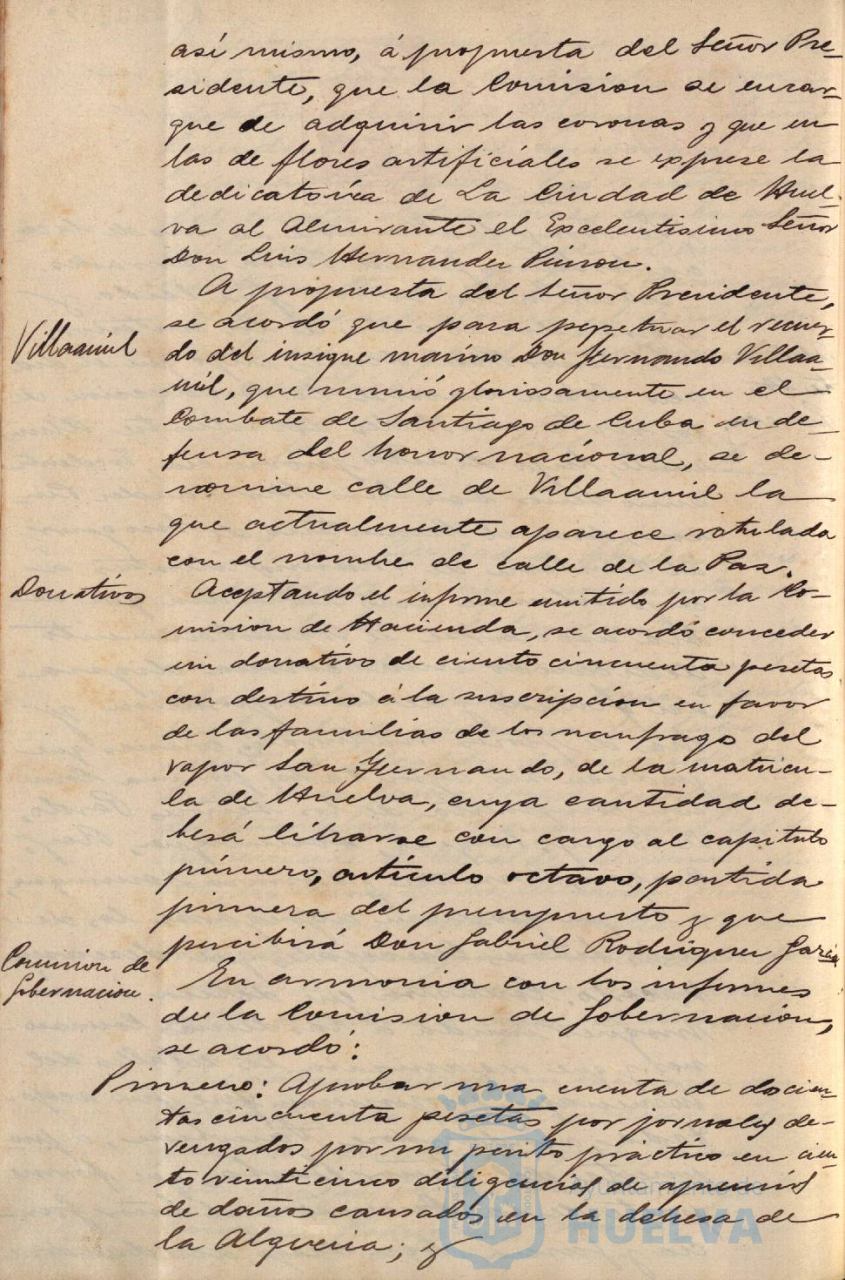 así mismo, á propuesta del Señor Pre-
sidente, que la Comision se encar-
gue de adquirir las coronas y que en
las de flores artificiales se exprese la
dedicatoria de La Ciudad de Huel-
va al Almirante el Excelentisimo Señor
Don Luis Hernandez Pinzon.
A propuesta del Señor Presidente,
Villaamil
se acordó que para perpetuar el recuer-
do del insigne marino Don Fernando Villaa-
mil, que murió gloriosamente en el
Combate de Santiago de Cuba en de-
fensa del honor nacional, se de-
nomine calle de Villaamil la
que actualmente aparece rotulada
con el nombre de calle de la Paz.
Donativos
Aceptando el informe emitido por la Co-
mision de Hacienda, se acordó conceder
un donativo de ciento cincuenta pesetas
con destino á la suscripción en favor
de las familias de los naufrago del
vapor San Fernando, de la matricu-
la de Huelva, cuya cantidad de-
berá librarse con cargo al capitulo
primero, artículo octavo, partida
primera del presupuesto y que
percibirá Don Gabriel Rodriguez García
Comision de
Gobernacion.
En armonia con los informes
de la Comision de Gobernación,
se acordó:
Primero: Aprobar una cuenta de docien-
tas cincuenta pesetas por jornales de-
vengados por un perito práctico en cien-
to veinticinco diligencias de aprecios
de daños causados en la dehesa de
la Alqueria; y
HUELVA